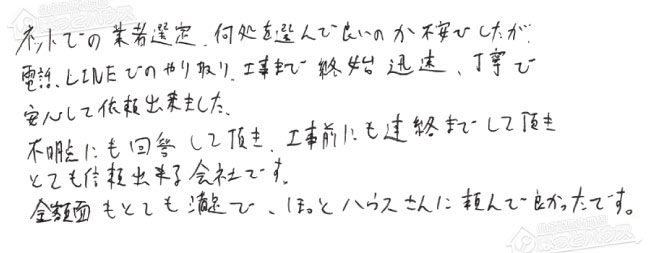 ネットでの業者選定、何処を選んで良いのか不安でしたが、
電話、LINEでのやり取り、工事まで終始迅速、丁寧で
安心して依頼出来ました。
不明点にも回答して頂き、工事前にも連絡までして頂き
とても信頼出来る会社です。
金額面もとても満足で、ほっとハウスさんに頼んで良かったです。